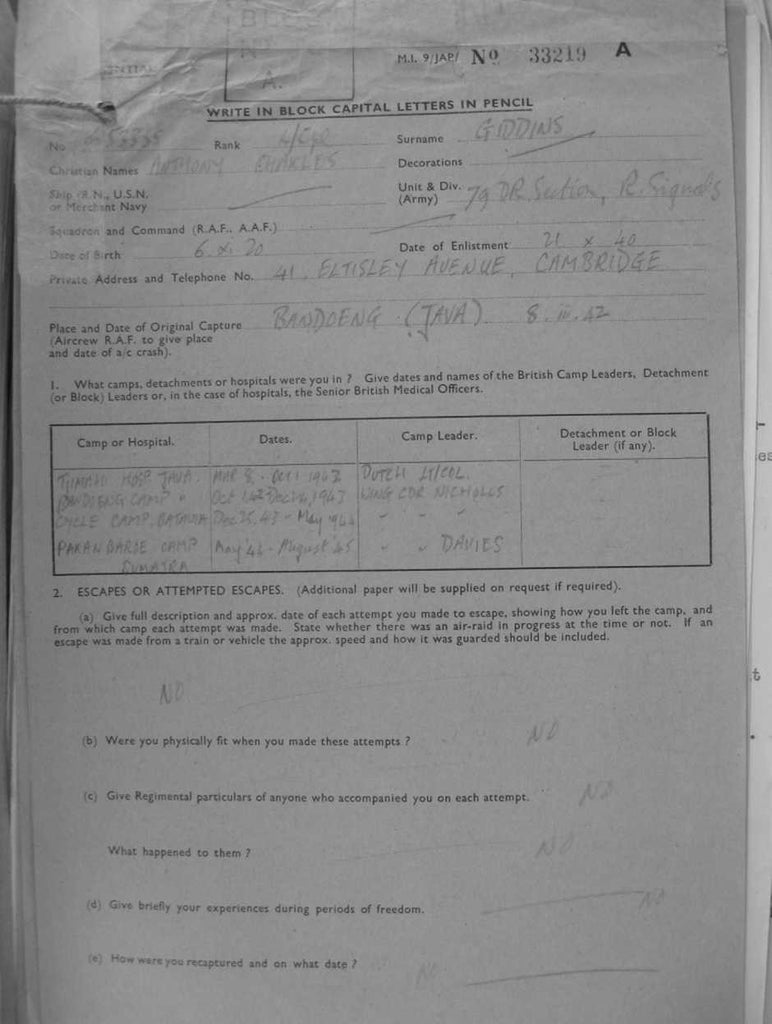 A.
M.I. 9/JAP/ No 33219 A
WRITE IN BLOCK CAPITAL LETTERS IN PENCIL
No Rank L/Cpl Surname GIDDINS
Christian Names ANTHONY CHARLES Decorations
Ship (R.N., U.S.N. or Merchant Navy
Unit & Div. (Army) 79 DR Section, R. Signals
Squadron and Command (R.A.F., A.A.F.)
Date of Birth 6. x. 20 Date of Enlistment 21 x 40
Private Address and Telephone No. 41, ELTISLEY AVENUE, CAMBRIDGE
Place and Date of Original Capture BANDOENG (JAVA) 8. iii. 42
(Aircrew R.A.F. to give place
and date of a/c crash).
1. What camps, detachments or hospitals were you in ? Give dates and names of the British Camp Leaders, Detachment
(or Block) Leaders or, in the case of hospitals, the Senior British Medical Officers.
Camp or Hospital. Dates. Camp Leader. Detachment or Block Leader (if any).
HOSP JAVA. MAR 8 - OCT 1942 DUTCH LT/COL.
BANDOENG CAMP " Oct 1943 WING CDR NICHOLLS
CYCLE CAMP, BATAVIA Dec 25, 43 - May 1944 " " "
PAKAN BAROE CAMP May '44 - August '45 " " DAVIES
SUMATRA
2. ESCAPES OR ATTEMPTED ESCAPES. (Additional paper will be supplied on request if required).
(a) Give full description and approx. date of each attempt you made to escape, showing how you left the camp, and
from which camp each attempt was made. State whether there was an air-raid in progress at the time or not. If an
escape was made from a train or vehicle the approx. speed and how it was guarded should be included.
NO
(b) Were you physically fit when you made these attempts ? NO
(c) Give Regimental particulars of anyone who accompanied you on each attempt. NO
What happened to them ? NO
(d) Give briefly your experiences during periods of freedom. NO
(e) How were you recaptured and on what date ? NO